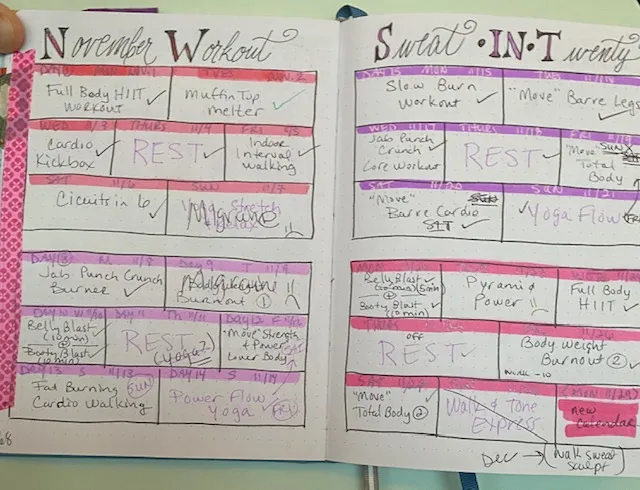 November Workout
DAY 1 MON NOV. 1
TUES NOV. 2
Full Body HIIT
Workout ✓
Muffin Top
melter ✓
WED 11/3
THURS 11/4
FRI 11/5
Cardio
Kickbox ✓
REST ✓
Indoor
Interval
Walking ✓
SAT 11/6
SUN 11/7
Cicuits in 6 ✓
Yoga Stretch
& Relax
Migraine
DAY 8 M 11/8
Day 9 T 11/9
Jab Punch Crunch
Burner ✓
Burnout ①
DAY 10 W 11/10
DAY 11 Th 11/11
DAY 12 F 11/12
Belly Blast
(10 min) ✓
Booty Blast
(10 min)
REST
(yoga?)
"Move" Strength
& Power
Lower Body
DAY 13 S 11/13
DAY 14 S 11/14
Fat Burning SUN
Cardio Walking
Power Flow ✓
Yoga FRI
68
Sweat · IN · Twenty
DAY 15 MON 11/15
TUE 11/16
Slow Burn
Workout ✓
"Move" Barre Legs ✓
WED 11/17
THURS 11/18
FRI 11/19
Jab Punch
Crunch ✓
Core Workout
REST ✓
"Move" SUN
Total
Body
SAT 11/20
SUN 11/21
"Move"
Barre Cardio SUN
SAT ✓
✓ Yoga Flow FRI
Belly Blast ✓
(10 min) (5 min)
+
Booty Blast ✓
(10 min)
Pyramid
Power !!
Full Body
HIIT ✓
THURS
off
REST ✓
Body Weight
Burnout ② ✓
WALK - 10
SAT
"Move" ✓
Total Body ②
Walk & Tone
Express
(MON 11/29)
new
calendar
Dec → (Walk Sweat
Sculpt)